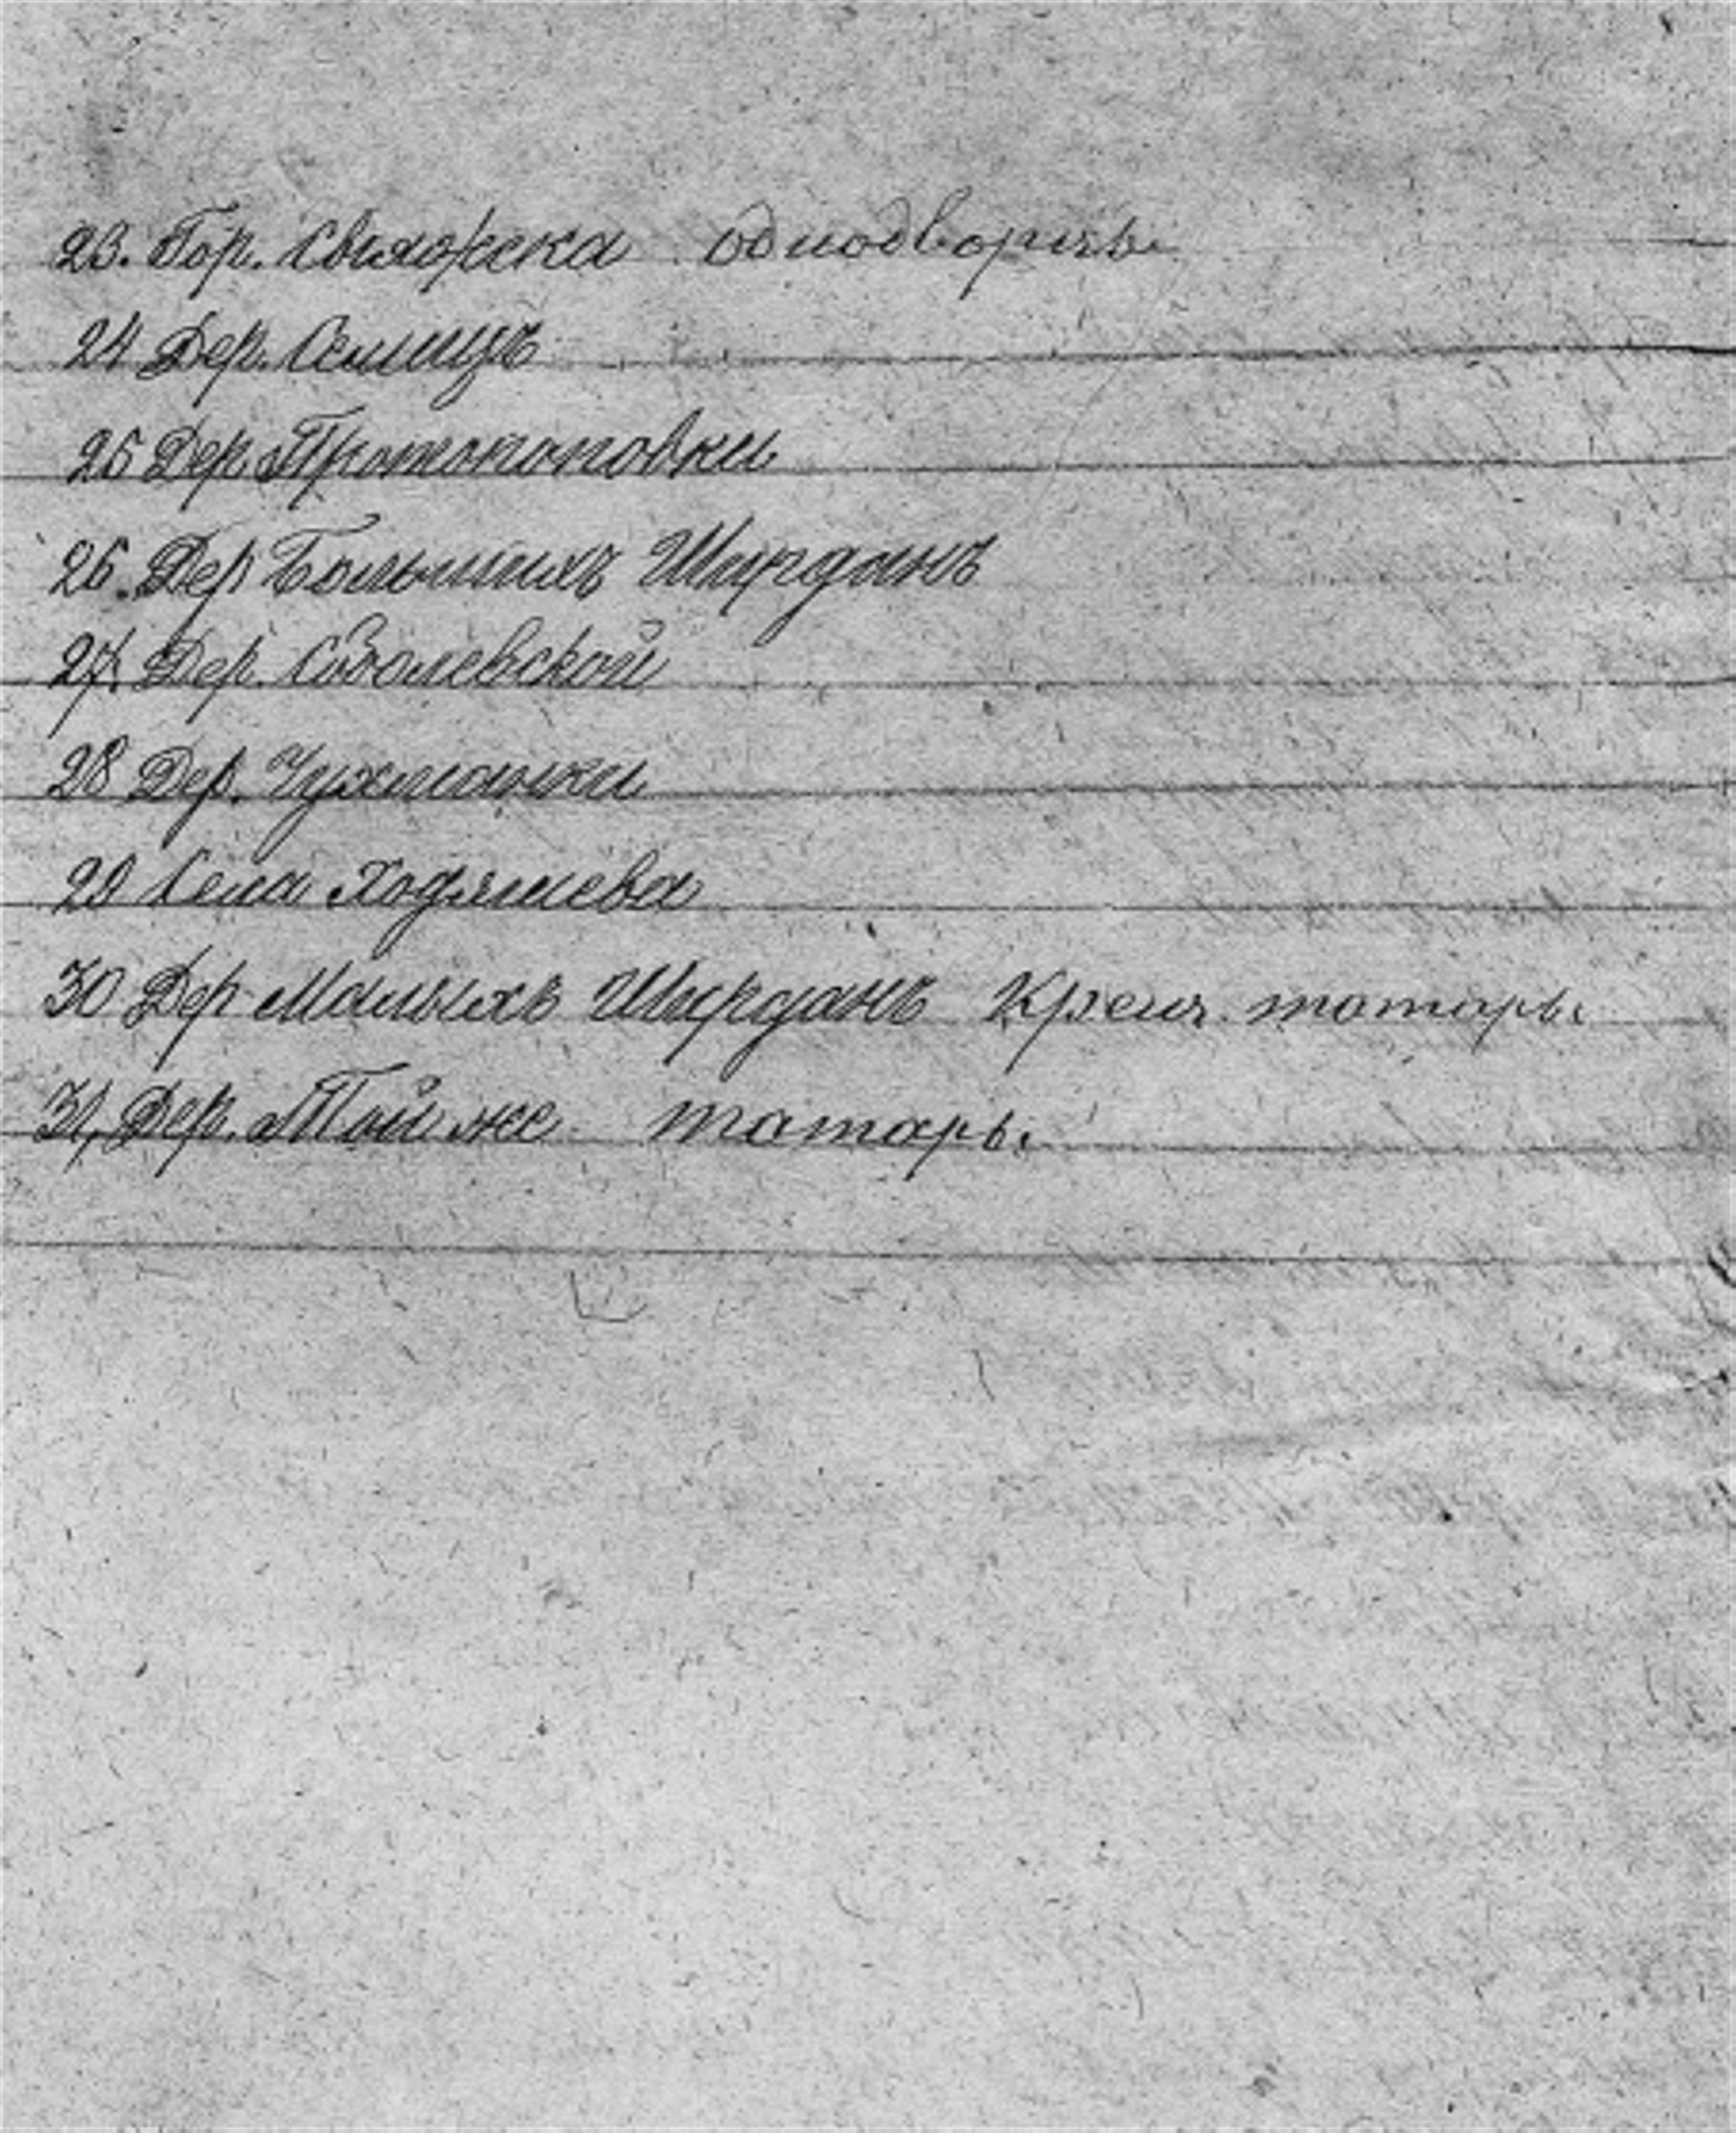 23. Гор. Свіяжска однодворцы
24 Дер. Селищъ
25 Дер. Протопоповки
26. Дер Большихъ Ширданъ
27. Дер. Соболевской
28 Дер. Чухманки
29 Села Ходяшева
30 Дер Малыхъ Ширданъ Крещ. татары
31, Дер. Той же татары